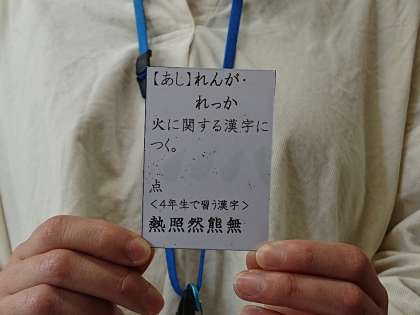 【あし】れんが・
れっか
火に関する漢字に
つく。
点
<4年生で習う漢字>
熱照然熊無